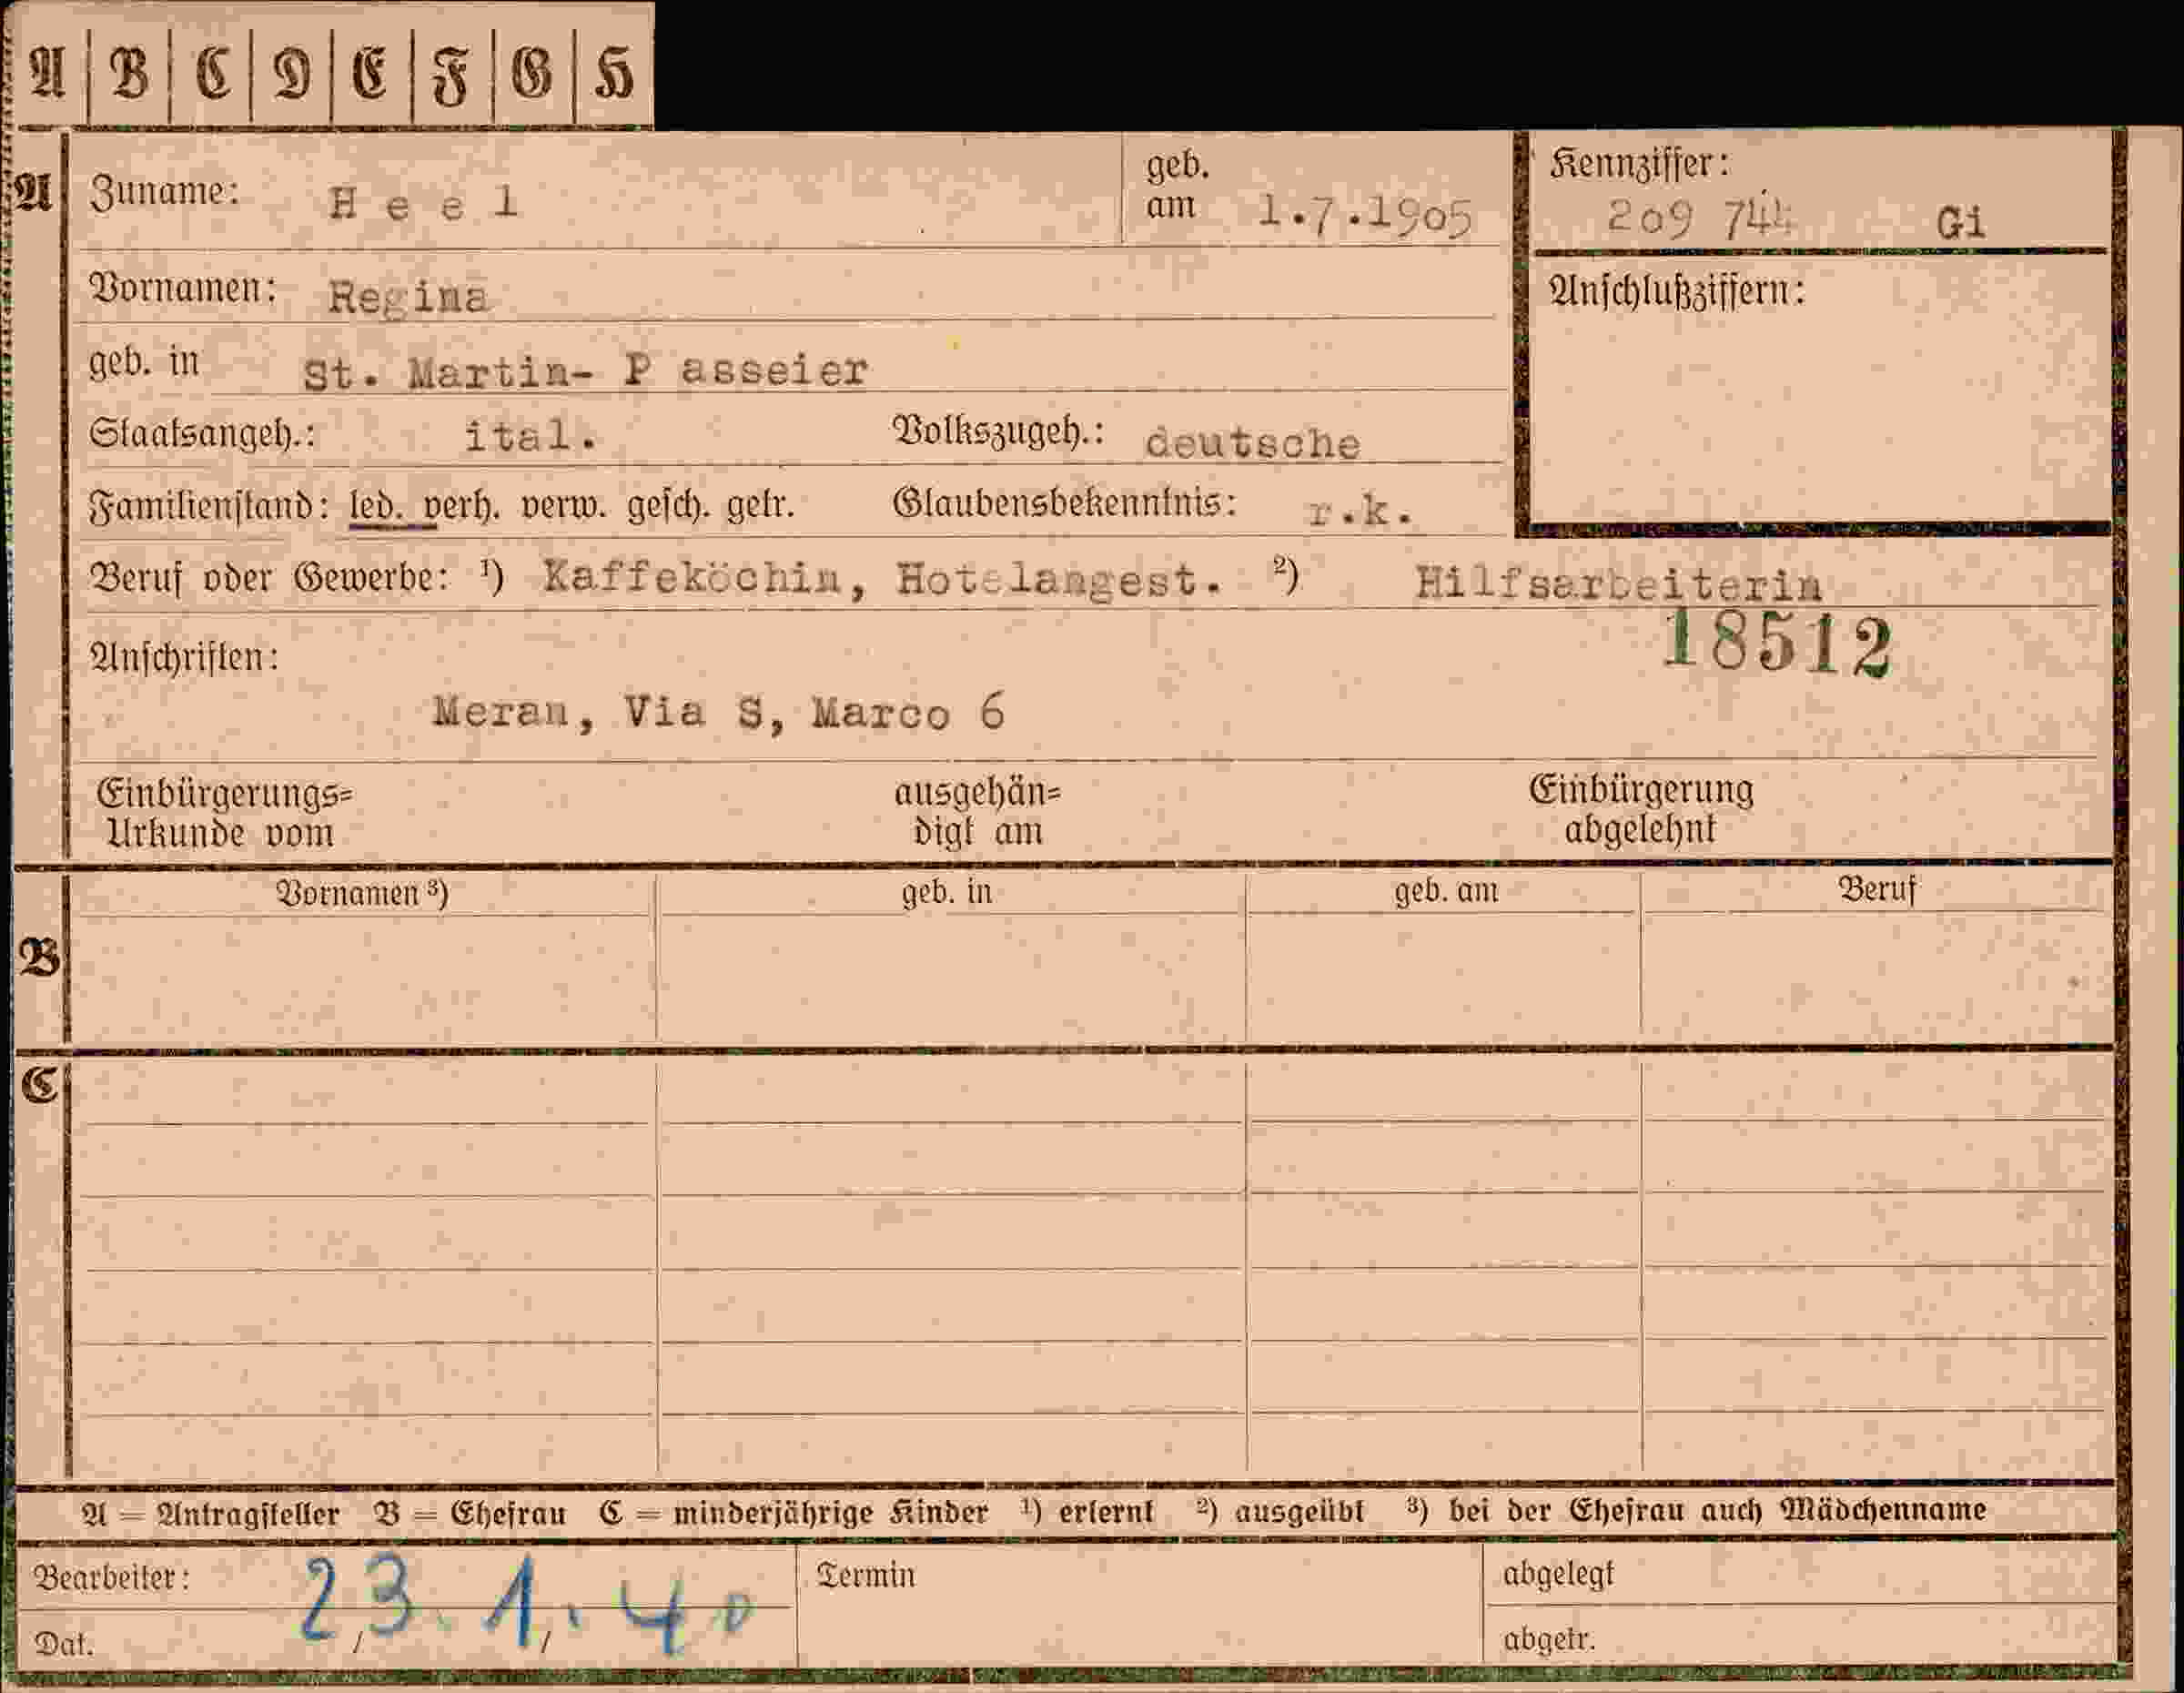 A B C D E F G H
A Zuname: H e e l geb. am 1.7.1905 Kennziffer: 209 744 Gi
Vornamen: Regina Anschlußziffern:
geb. in St. Martin- P asseier
Staatsangeh.: ital. Volkszugeh.: deutsche
Familienstand: led. verh. verw. gesch. getr. Glaubensbekenntnis: r.k.
Beruf oder Gewerbe: ¹) Kaffeköchin, Hotelangest. ²) Hilfsarbeiterin
Anschriften: 18512
Meran, Via S, Marco 6
Einbürgerungs= ausgehän= Einbürgerung
Urkunde vom digt am abgelehnt
Vornamen ³) geb. in geb. am Beruf
B
C
A = Antragsteller B = Ehefrau C = minderjährige Kinder ¹) erlernt ²) ausgeübt ³) bei der Ehefrau auch Mädchenname
Bearbeiter: 23.1.40 Termin abgelegt
Dat. / / abgetr.